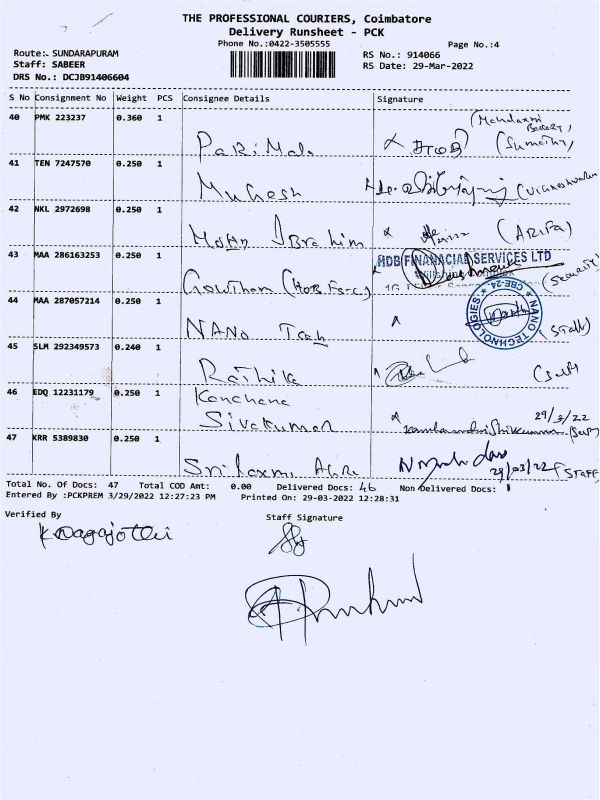 THE PROFESSIONAL COURIERS, Coimbatore
Delivery Runsheet - PCK
Phone No.:0422-3505555
Page No.:4
Route: SUNDARAPURAM
Staff: SABEER
DRS No.: DCJB91406604
RS No.: 914066
RS Date: 29-Mar-2022
S No Consignment No Weight PCS Consignee Details Signature
40 PMK 223237 0.360 1 Parimala
41 TEN 7247570 0.250 1 Mukesh
42 NKL 2972698 0.250 1 Mohd Ibrahim (ARIFA)
43 MAA 286163253 0.250 1 Gowtham HDB FINANACIAL SERVICES LTD (Security)
44 MAA 287057214 0.250 1 NANO Tech NANO TECHNOLOGIES CBE-24 (Staff)
45 SLM 292349573 0.240 1 Rathika (Self)
46 EDQ 12231179 0.250 1 Kanchana
Sivakumar 29/3/22 (Self)
47 KRR 5389830 0.250 1 Sri Laxmi 29/03/22 (STAFF)
Total No. Of Docs: 47 Total COD Amt: 0.00 Delivered Docs: 46 Non Delivered Docs: 1
Entered By :PCKPREM 3/29/2022 12:27:23 PM Printed On: 29-03-2022 12:28:31
Verified By
Staff Signature
K Nagajothi